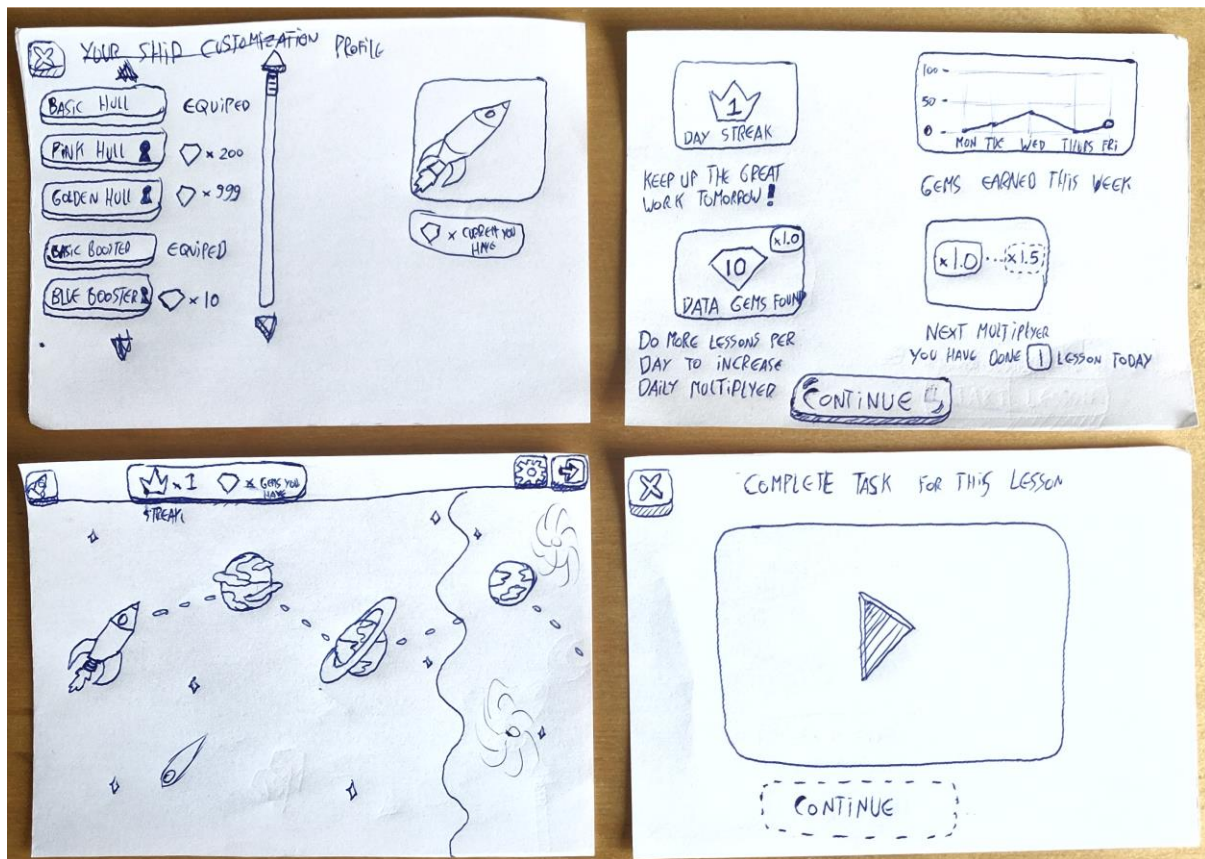 X YOUR SHIP CUSTOMIZATION PROFILE
BASIC HULL EQUIPED
PINK HULL × 200
GOLDEN HULL × 999
BASIC BOOTER EQUIPED
BLUE BOOSTER × 10
× CURRENT YOU
HAVE
1
DAY STREAK
KEEP UP THE GREAT
WORK TOMORROW!
×1.0
10
DATA GEMS FOUND
DO MORE LESSONS PER
DAY TO INCREASE
DAILY MULTIPLYER
100
50
0
MON TUE WED THURS FRI
GEMS EARNED THIS WEEK
×1.0 ... ×1.5
NEXT MULTIPLYER
YOU HAVE DONE 1 LESSON TODAY
CONTINUE
× 1 × GEMS YOU
HAVE
STREAK
X COMPLETE TASK FOR THIS LESSON
CONTINUE